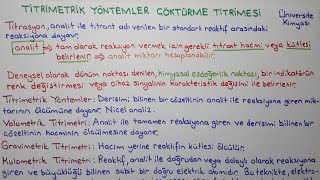 TİTRİMETRİK YÖNTEMLER GÖKTÜRME TİTRİMESİ
Üniversite
Kimyası
Titrasyon, analit ile titrant adı verilen bir standart reaktif arasındaki
reaksiyona dayanır.
analit → tam olarak reaksiyon vermek için gerekli titrant hacmi veya kütlesi
belirlenir → analit miktarı hesaplanabilir.
Deneysel olarak dönüm noktası denilen, kimyasal eşdeğerlik noktası, bir indikatörün
renk değiştirmesi veya cihaz sinyalinin karakteristik değişimi ile belirlenir.
Titrimetrik Yöntemler: Derişimi bilinen bir çözeltinin analit ile reaksiyona giren mik-
tarının ölçümüne dayanır. Nicel analiz.
Volumetrik Titrimetri: Analit ile tamamen reaksiyona giren ve derişimi bilinen bir
çözeltinin hacminin ölçülmesine dayanır.
Gravimetrik Titrimetri: Hacim yerine reaktifin kütlesi ölçülür.
Kulometrik Titrimetri: Reaktif, analit ile doğrudan veya dolaylı olarak reaksiyona
giren ve büyüklüğü bilinen sabit bir doğru elektrik akımıdır. Bu teknikte, elektro-